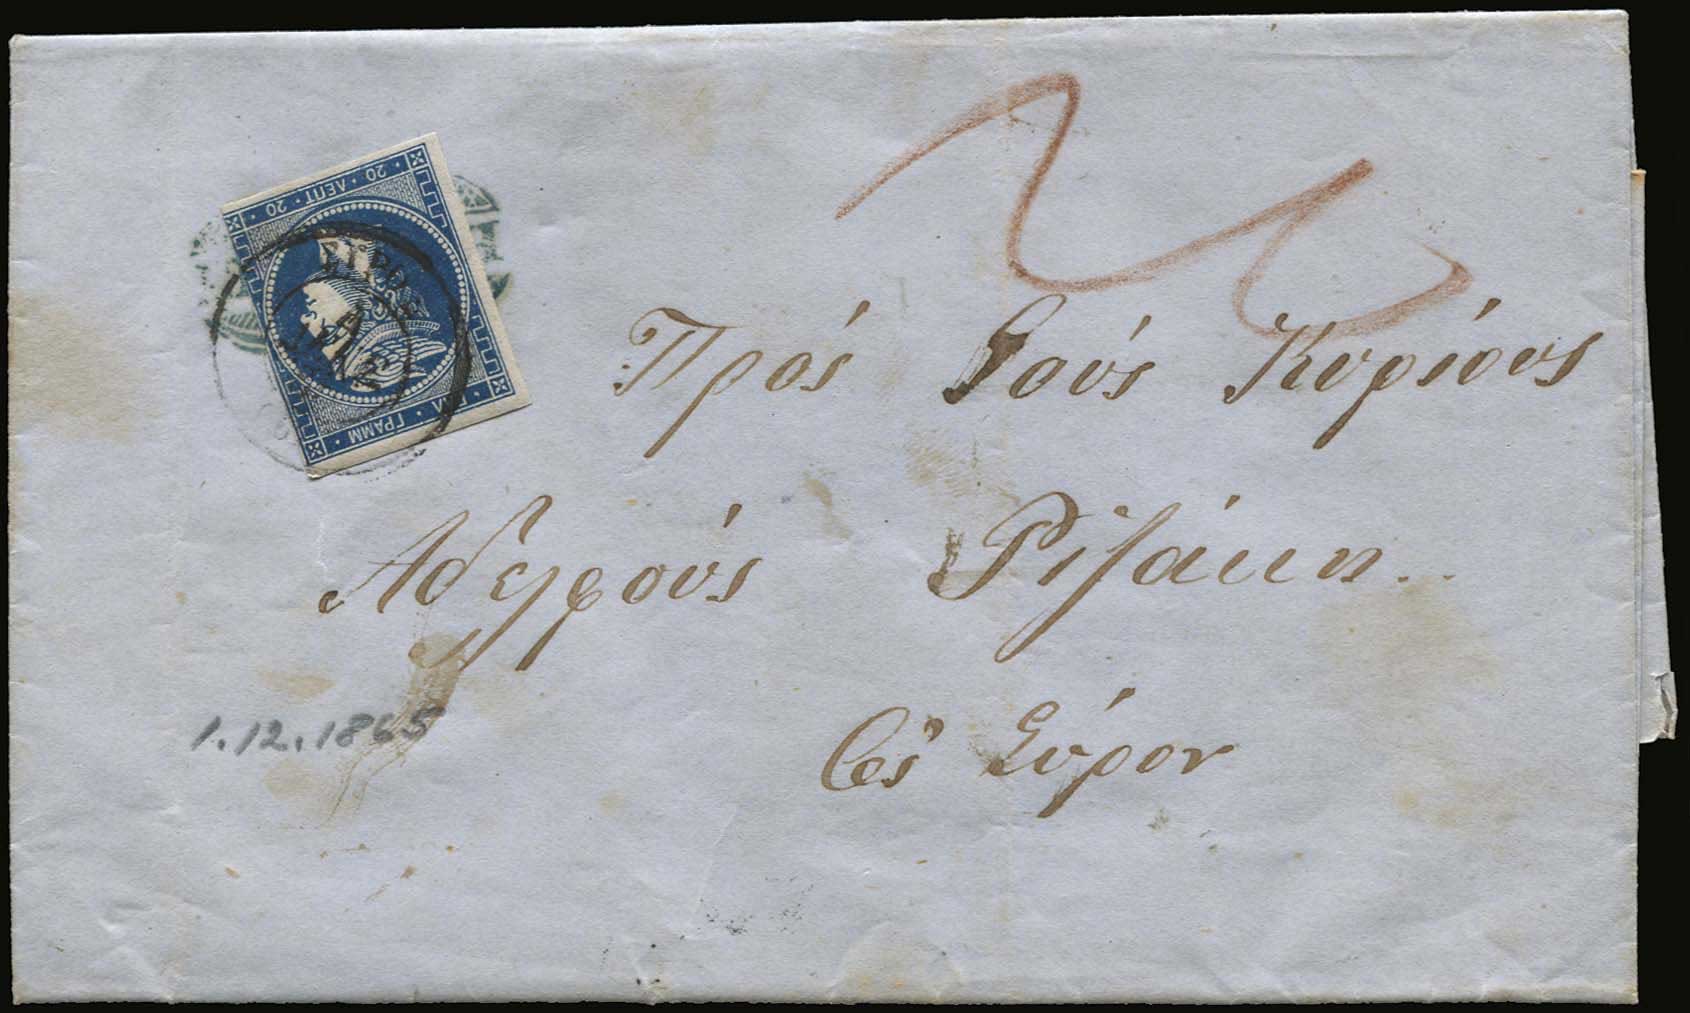 20 · ΛΕΠΤ · 20
ΕΛΛ · ΓΡΑΜΜ
Πρός τούς Κυρίους
Αδελφούς Ριζάκη..
Εἰς Σύρον
1.12.1865